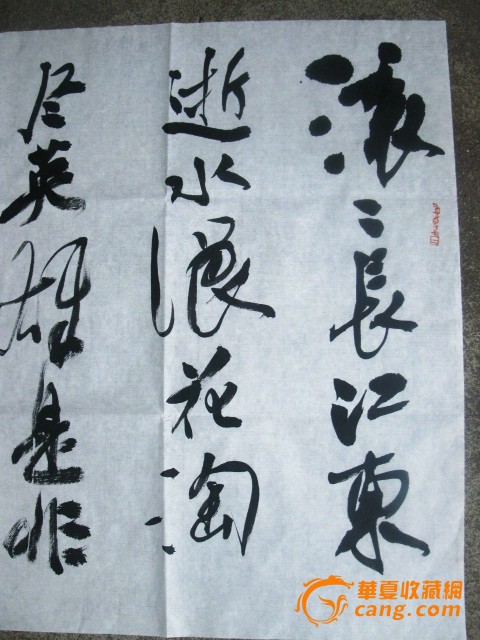 滚〻長江東
逝水浪花淘
尽英雄是非
華夏收藏網
cang.com